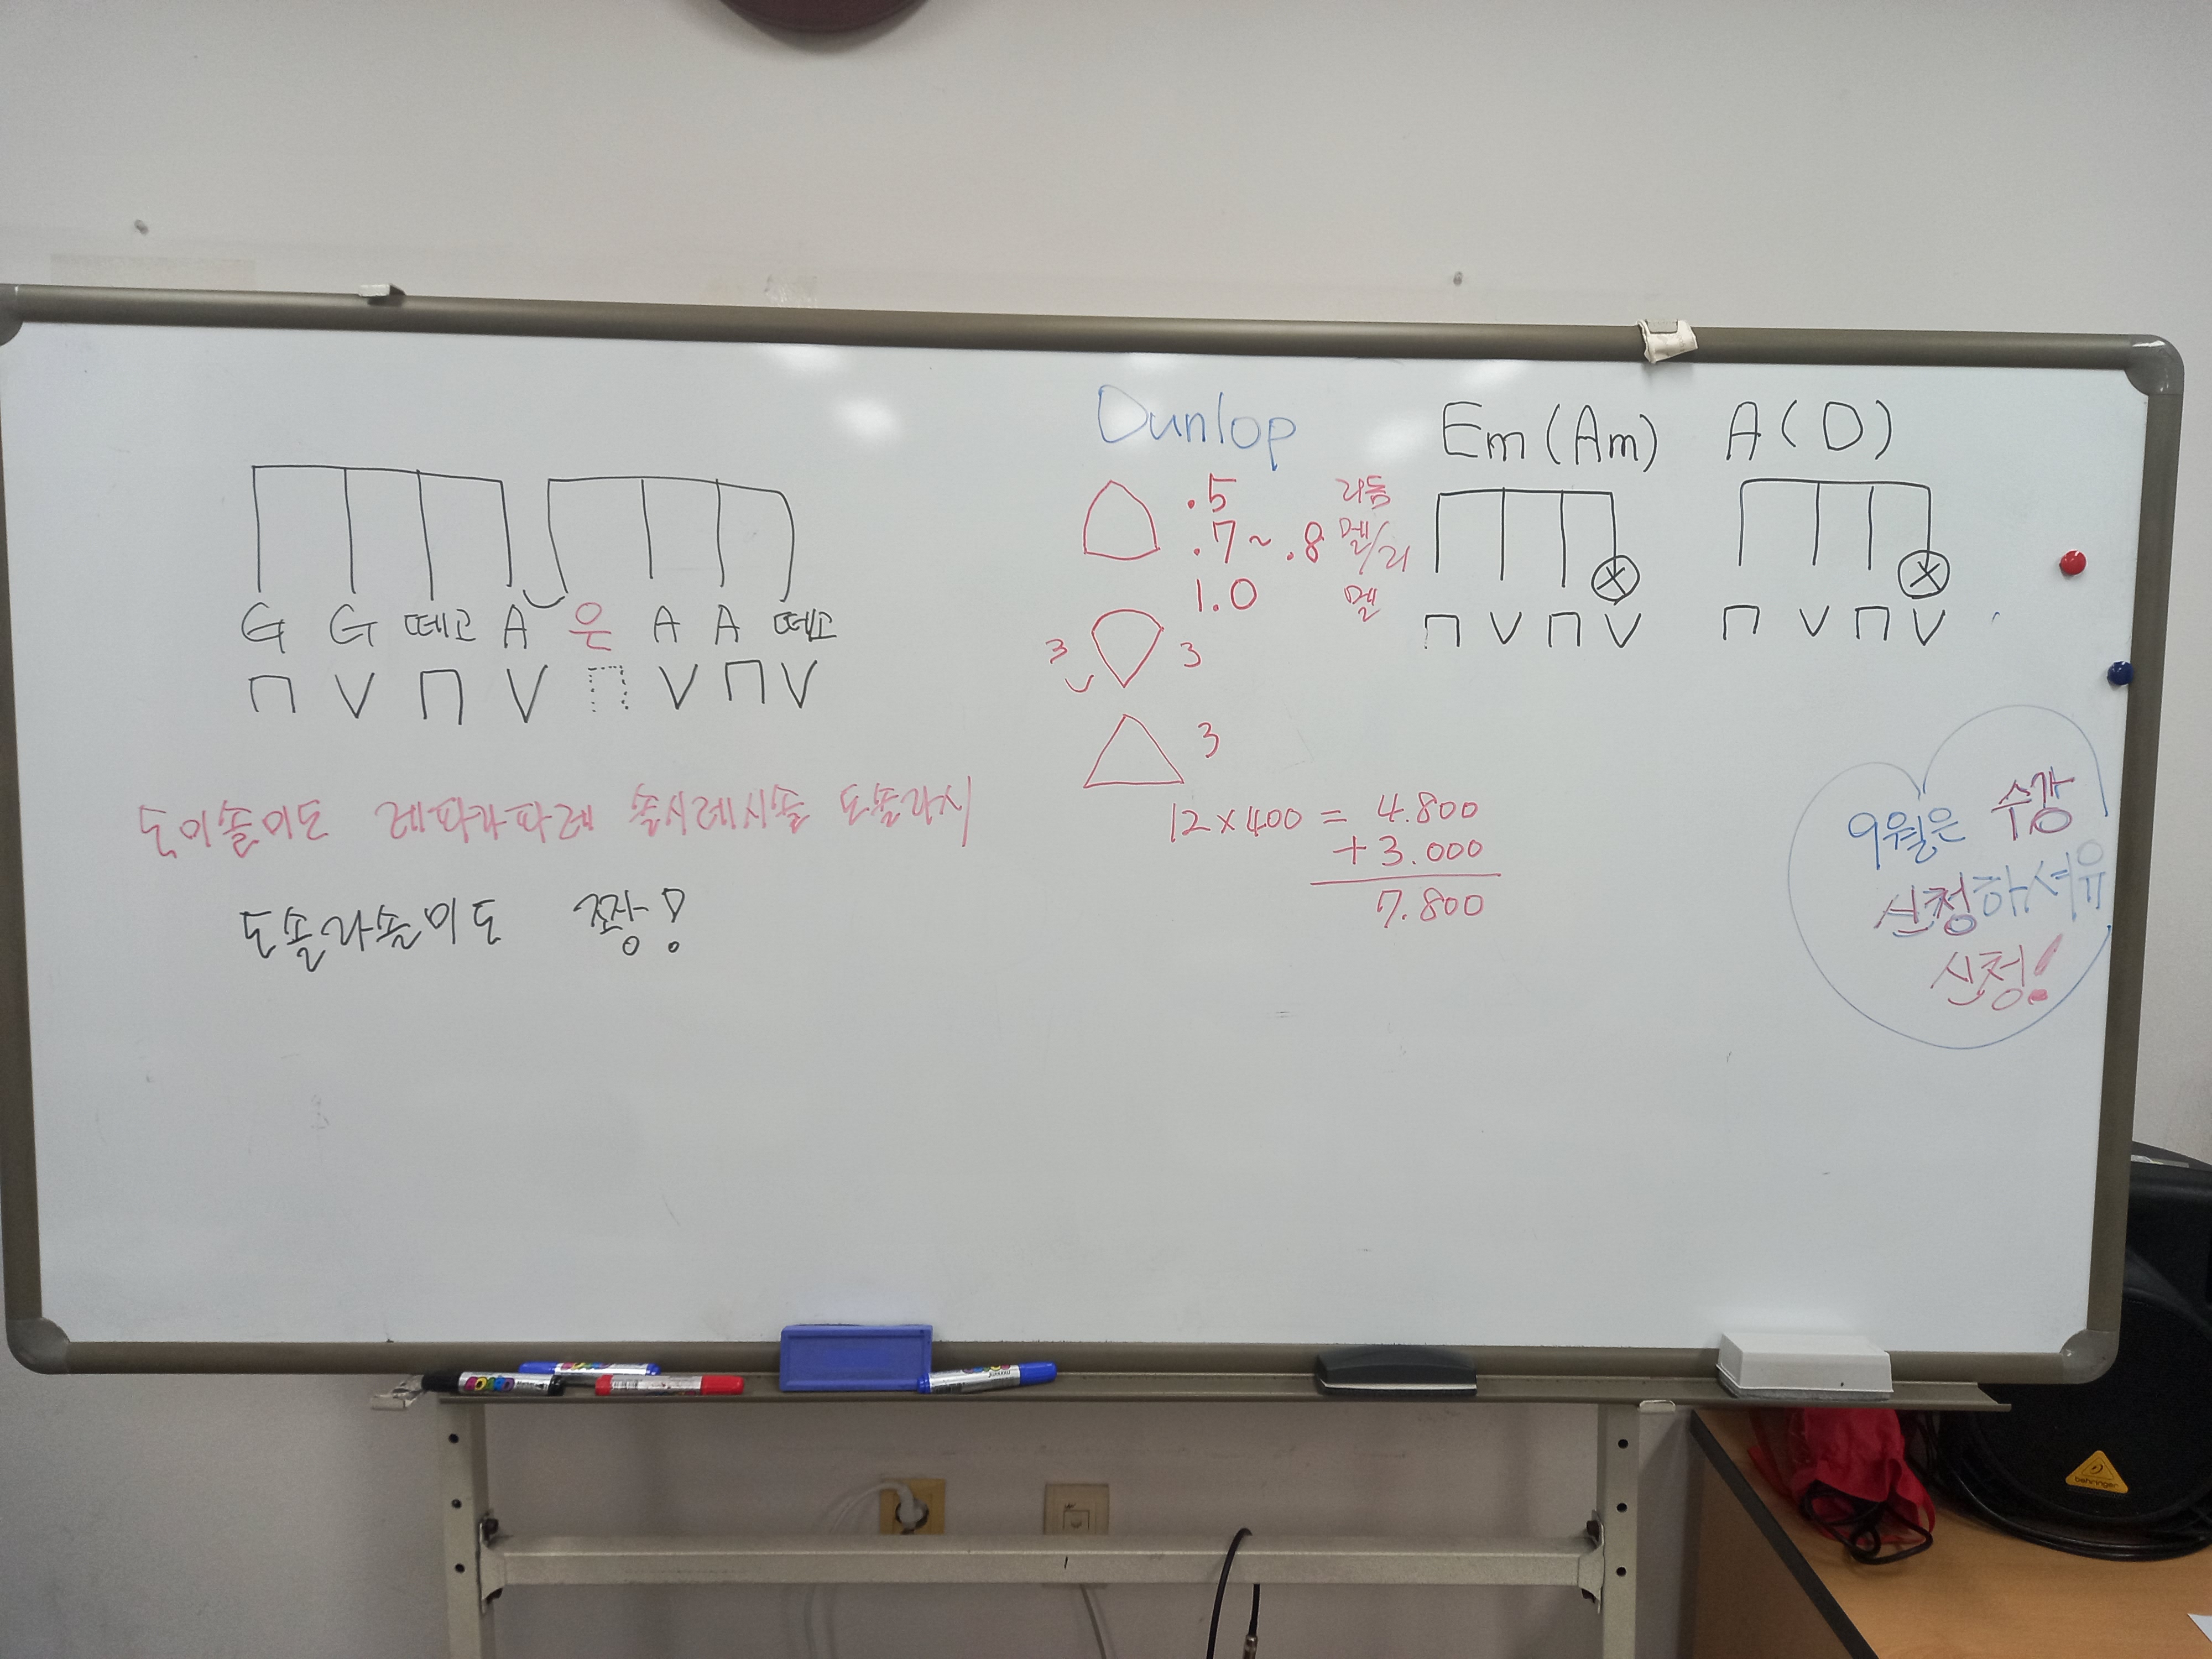 G G 떼고 A 은 A A 떼고
П V П V П V П V
도미솔미도 레파라파레 솔시레시솔 도솔라시
도솔라솔미도 짱!
Dunlop
.5 리듬
.7~.8 멜/리
1.0 멜
3 3
3
12×400 = 4.800
+3.000
7.800
Em(Am) A(D)
П V П V П V П V
9월은 수강
신청하셔유
신청!
behringer